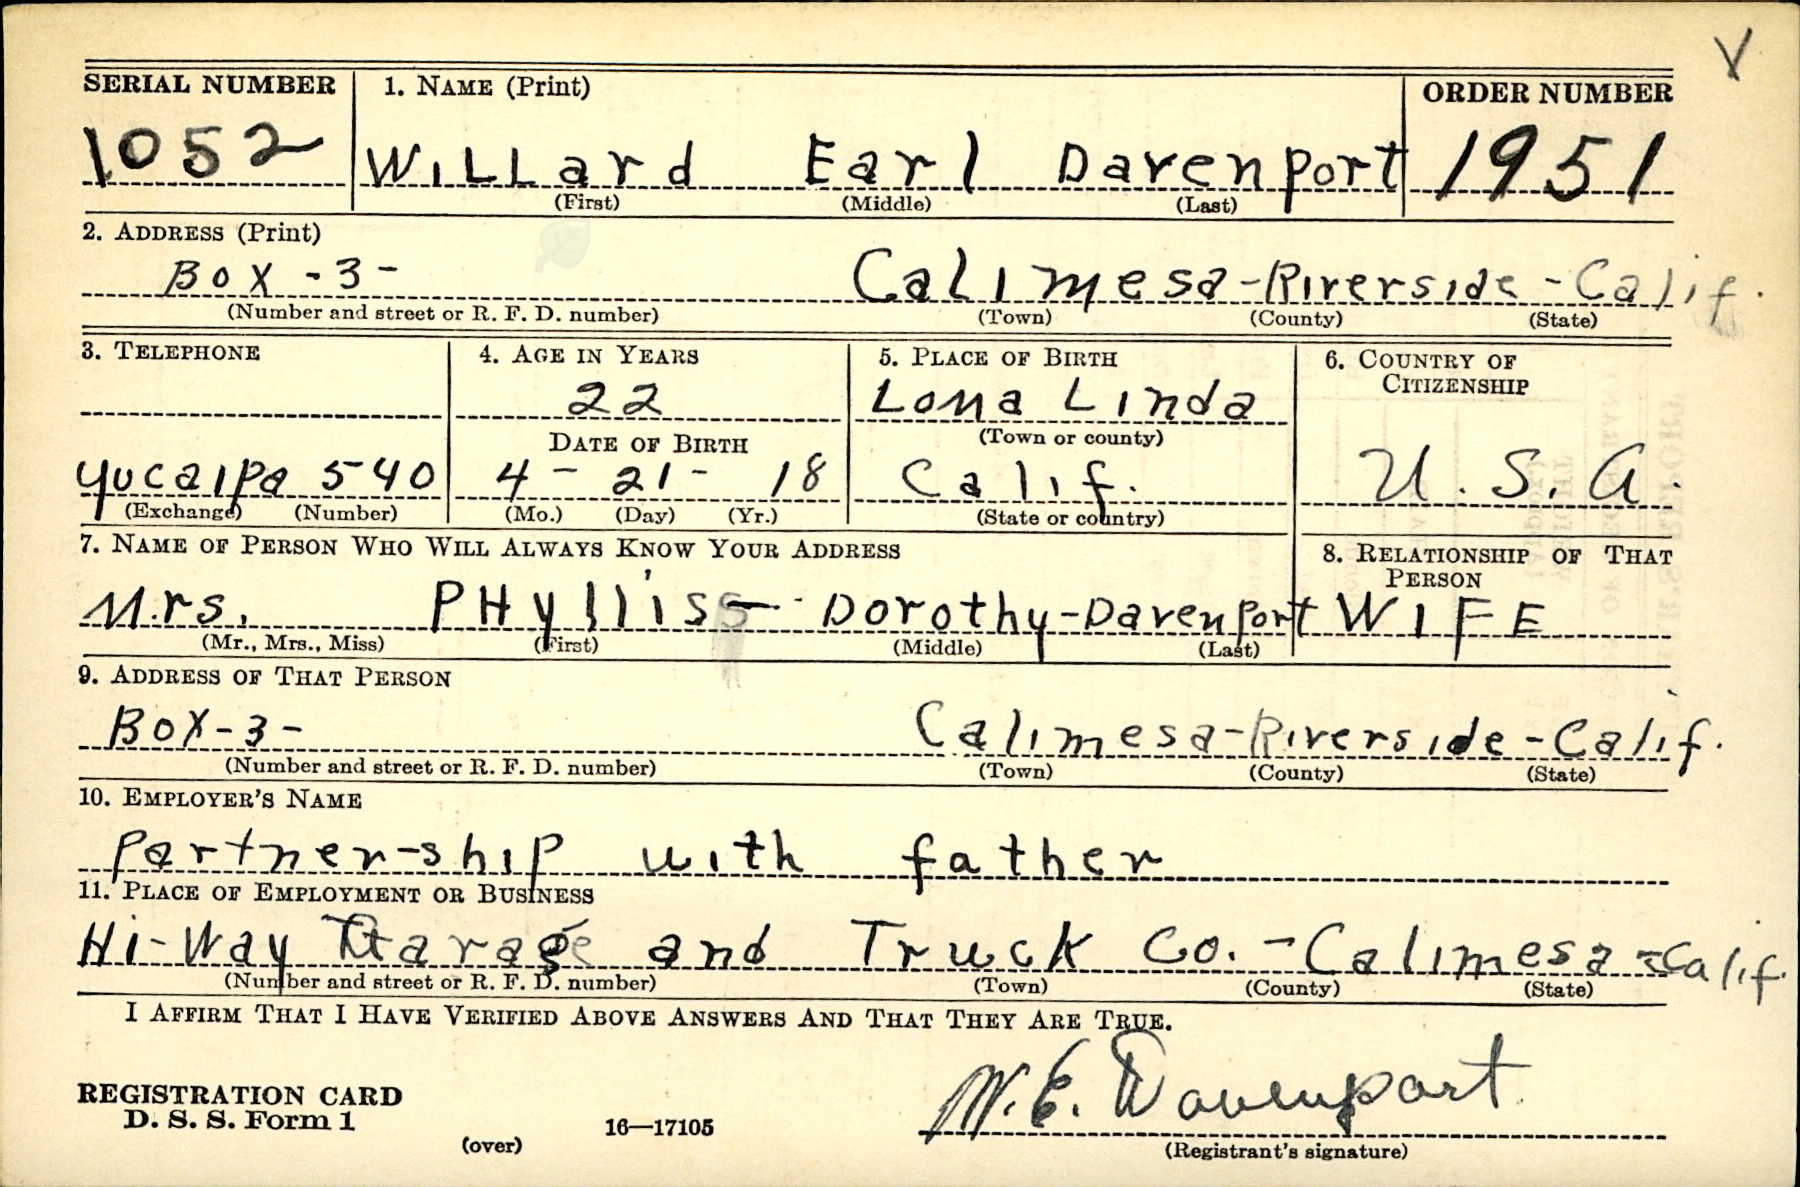 V
SERIAL NUMBER 1. NAME (Print) ORDER NUMBER
1052 WILLard Earl Davenport 1951
(First) (Middle) (Last)
2. ADDRESS (Print)
Box -3- Calimesa-Riverside-Calif.
(Number and street or R. F. D. number) (Town) (County) (State)
3. TELEPHONE 4. AGE IN YEARS 5. PLACE OF BIRTH 6. COUNTRY OF CITIZENSHIP
22 Loma Linda
DATE OF BIRTH (Town or county)
Yucaipa 540 4-21-18 Calif. U.S.A.
(Exchange) (Number) (Mo.) (Day) (Yr.) (State or country)
7. NAME OF PERSON WHO WILL ALWAYS KNOW YOUR ADDRESS 8. RELATIONSHIP OF THAT PERSON
Mrs. PHyllis - Dorothy-Davenport WIFE
(Mr., Mrs., Miss) (First) (Middle) (Last)
9. ADDRESS OF THAT PERSON
Box-3- Calimesa-Riverside-Calif.
(Number and street or R. F. D. number) (Town) (County) (State)
10. EMPLOYER'S NAME
Partner-ship with father
11. PLACE OF EMPLOYMENT OR BUSINESS
Hi-Way Garage and Truck Co.-Calimesa-Calif.
(Number and street or R. F. D. number) (Town) (County) (State)
I AFFIRM THAT I HAVE VERIFIED ABOVE ANSWERS AND THAT THEY ARE TRUE.
W. E. Davenport
REGISTRATION CARD
D. S. S. Form 1 16—17105
(over) (Registrant's signature)